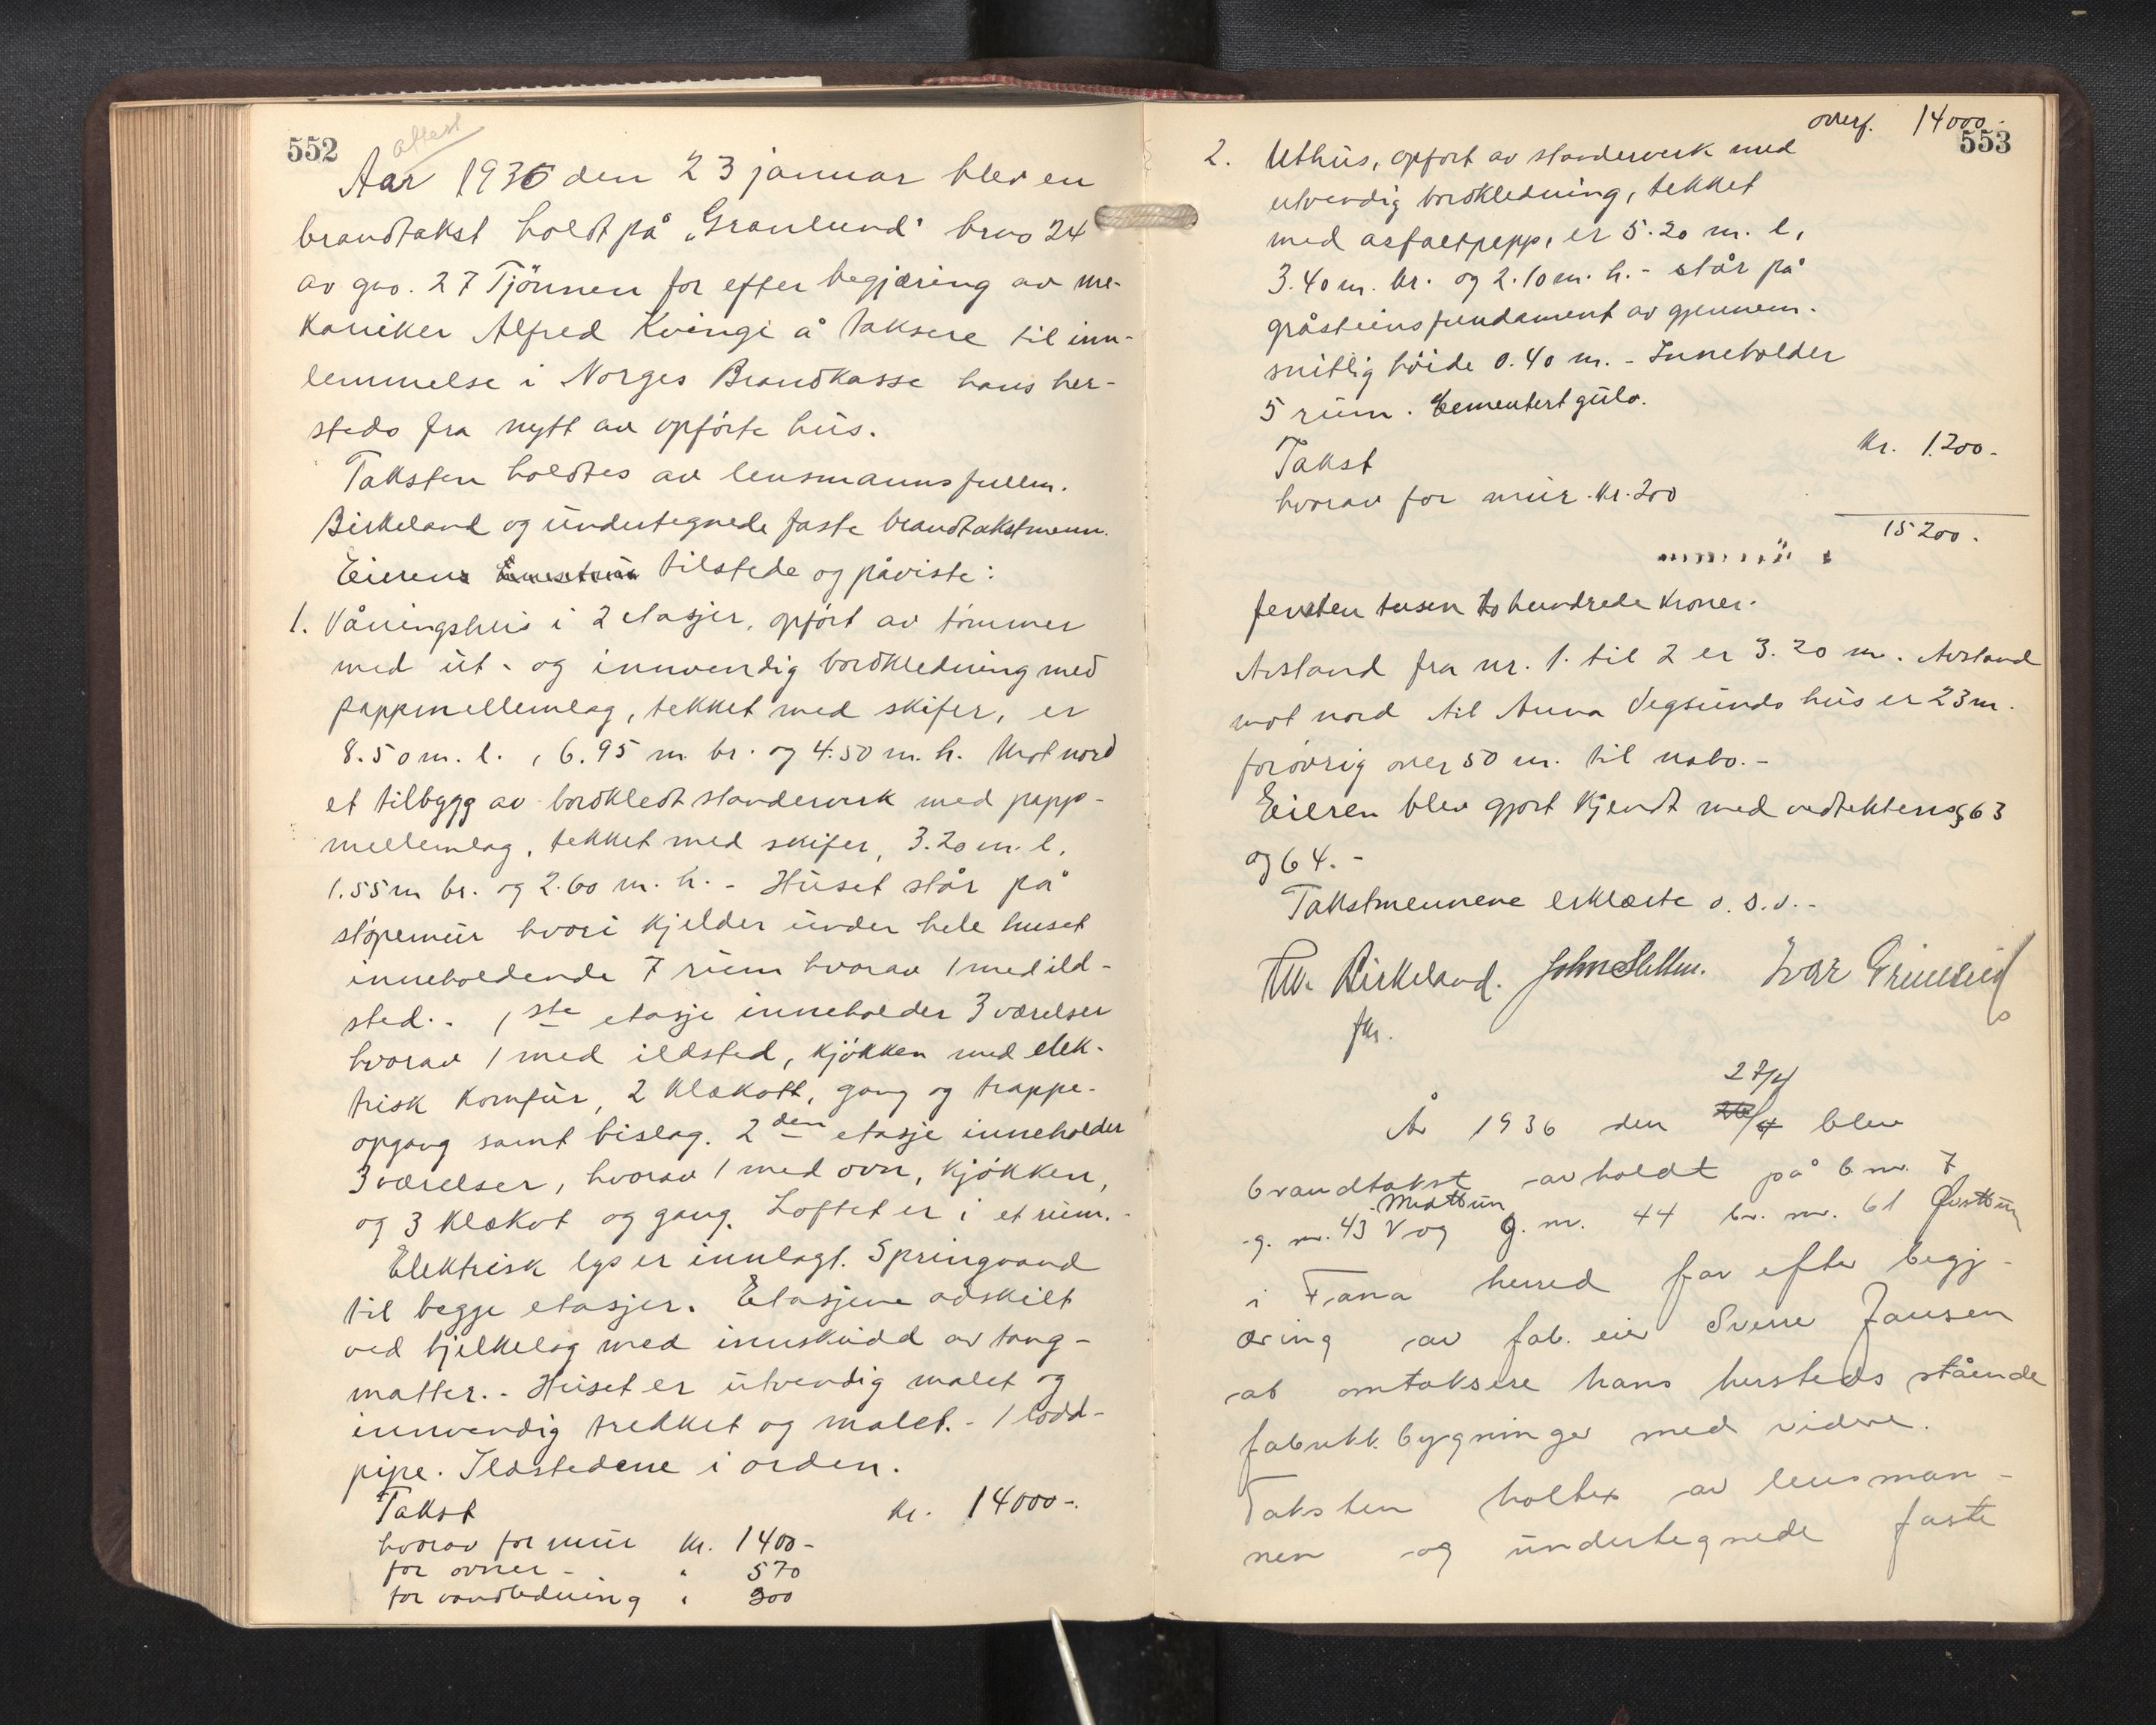 552
attest
Aar 1936 den 23 januar blev en
brandtakst holdt på „Granlund" brno 24
av gno. 27 Tjönnen for efter begjæring av me-
kaniker Alfred Kvinge å taksere til inn-
lemmelse i Norges Brandkasse hans her-
steds fra nytt av opförte hus.
Taksten holdtes av lensmannsfullm.
Birkeland og undertegnede faste brandtakstmenn.
Eieren tilstede og påviste:
1. Våningshus i 2 etasjer, opfört av tömmer
med ut- og innvendig bordkledning med
pappmellemlag, tekket med skifer, er
8.50 m. l., 6.95 m. br. og 4.50 m. h. Mot nord
et tilbygg av bordkledt standerverk med papp-
mellemlag, tekket med skifer, 3.20 m. l.
1.55 m br. og 2.60 m. h. - Huset står på
stöpemur hvori kjelder under hele huset
inneholdende 7 rum hvorav 1 med ild-
sted. - 1ste etasje inneholder 3 værelser
hvorav 1 med ildsted, kjökken med elek-
trisk komfur, 2 klækott, gang og trappe-
opgang samt bislag. 2den etasje inneholder
3 værelser, hvorav 1 med ovn, kjökken,
og 3 klækot og gang. Loftet er i et rum. -
Elektrisk lys er innlagt. Springvand
til begge etasjer. Etasjene adskilt
ved bjelkelag med innskudd av tang-
matter. - Huset er utvendig malet og
innvendig trekket og malet. - 1 lodd-
pipe. Ildstedene i orden.
Takst kr. 14000-.
hvorav for mur kr. 1400-
for ovner - " 570
for vandledning " 300
overf. 14000.-
553
2. Uthus, opfört av standerverk med
utvendig bordkledning, tekket
med asfaltpapp, er 5.20 m. l,
3.40 m. br. og 2.10 m. h. - står på
gråsteinsfundament av gjennem-
snitlig höide 0.40 m. - Inneholder
5 rum. Cementert gulv.
Takst kr. 1200-
hvorav for mur kr. 200
15200.
femten tusen to hundrede kroner.
Avstand fra nr. 1. til 2 er 3.20 m. Avstand
mot nord til Anna Vegsunds hus er 23 m.
forövrig over 50 m. til nabo. -
Eieren blev gjort kjendt med vedtektens § 63
og 64. -
Takstmennene erklærte o. s. v. -
Birkeland. Ivar Grimseid
fm.
27/4
År 1936 den 26/4 blev
brandtakst avholdt på bnr. 7
Midttun
g. nr. 43 V og g. nr. 44 br. nr. 61 Øvsttun
i Fana herred for efter begj-
æring av fab. eier Sverre Jansen
at omtaksere hans hersteds stående
fabrikk bygninger med videre.
Taksten holtes av lensman-
nen og undertegnede faste